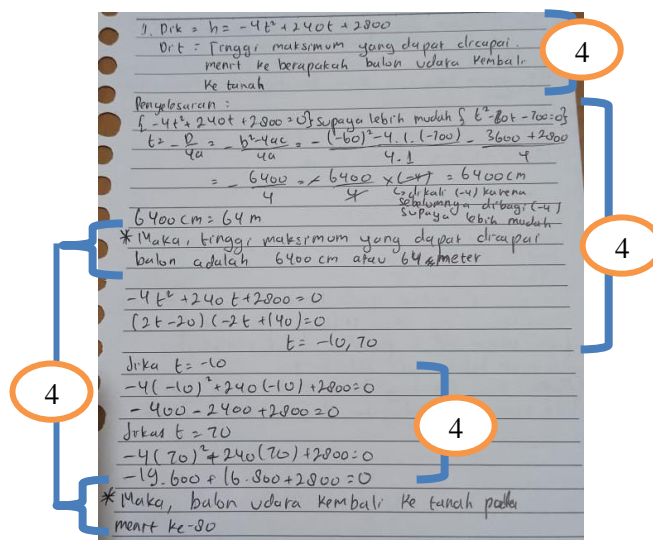 1. Dik = h = -4t² + 240t + 2800
Dit = Tinggi maksimum yang dapat dicapai.
menit ke berapakah balon udara kembali
ke tanah
4
Penyelesaian :
{ -4t² + 240t + 2800 = 0 } supaya lebih mudah { t² - 60t - 700 = 0 }
t = - D/4a = - b² - 4ac/4a = - (-60)² - 4.1.(-700)/4.1 - 3600 + 2800/4
= - 6400/4 = - 6400/4 × (-4) = 6400 cm
↳ dikali (-4) karena
sebelumnya dibagi (-4)
supaya lebih mudah
6400 cm = 64 m
* Maka, tinggi maksimum yang dapat dicapai
balon adalah 6400 cm atau 64 meter
4
-4t² + 240t + 2800 = 0
(2t - 20) (-2t + 140) = 0
t = -10, 70
Jika t = -10
4
-4(-10)² + 240(-10) + 2800 = 0
-400 - 2400 + 2800 = 0
4
Jikas t = 70
-4(70)² + 240(70) + 2800 = 0
-19.600 + 16.800 + 2800 = 0
* Maka, balon udara kembali ke tanah pada
menit ke-80